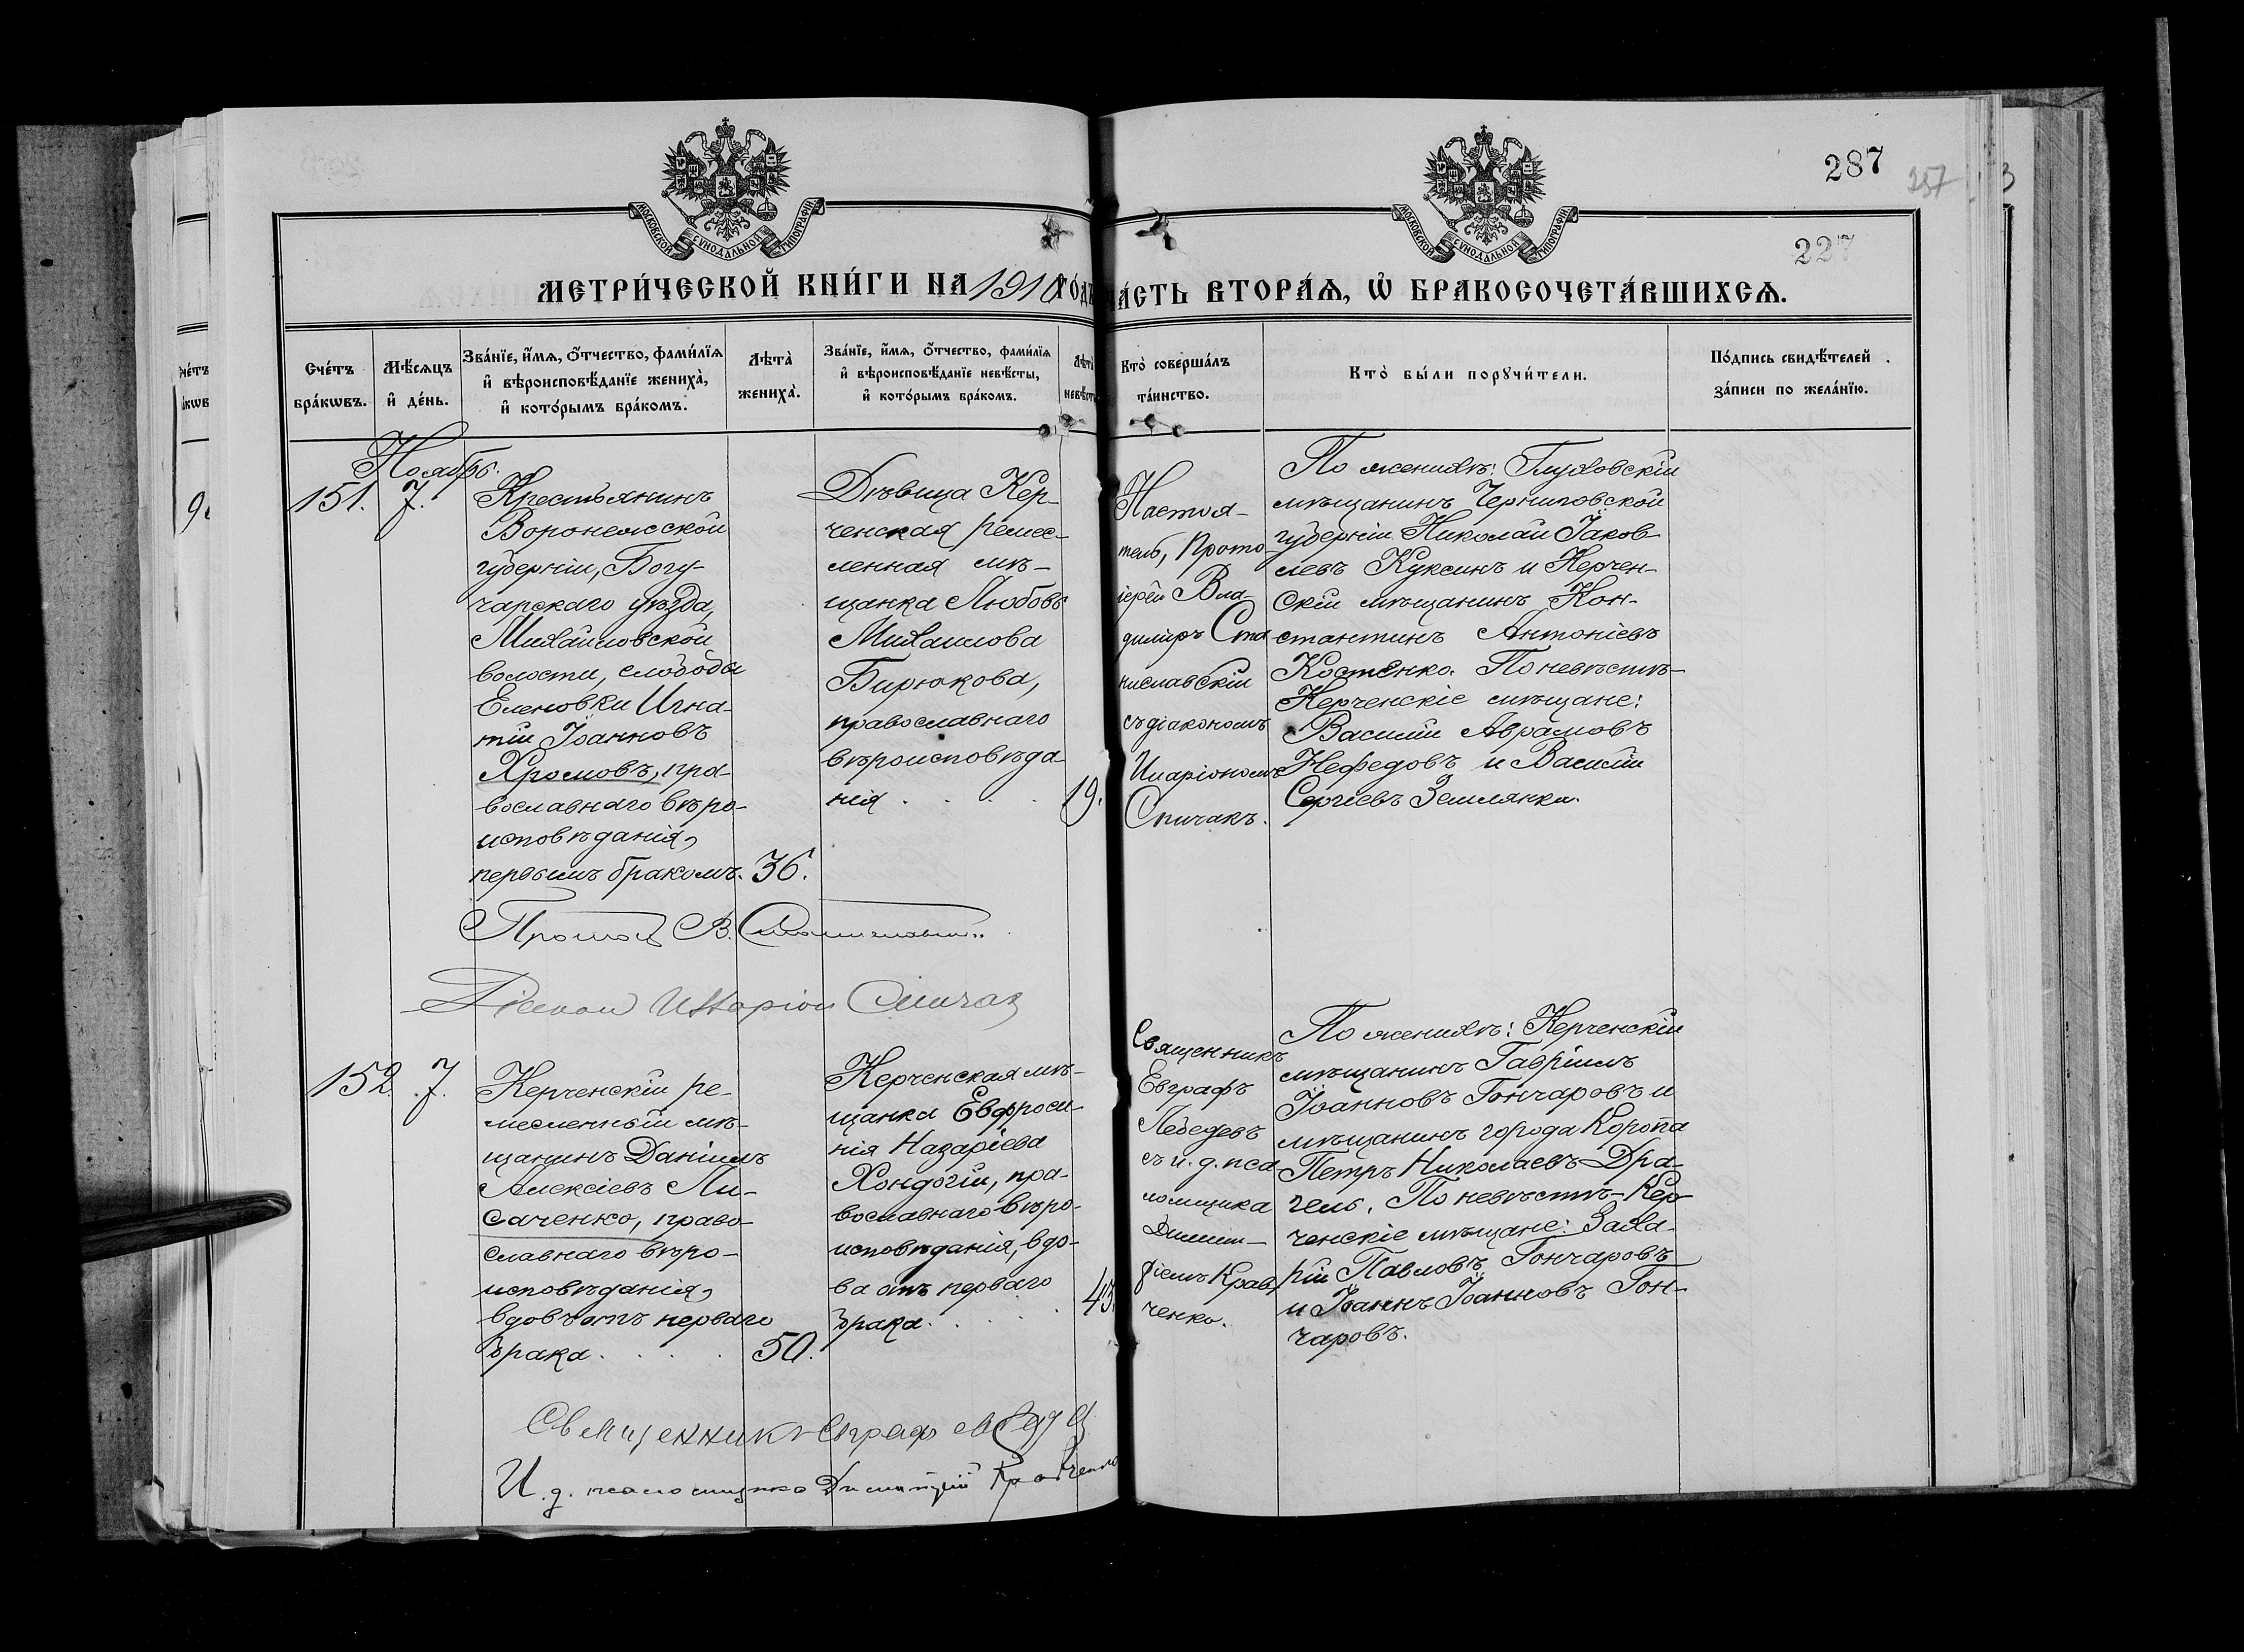 287
257
227
МОСКОВСКОЙ СѴНОДАЛЬНОЙ ТИПОГРАФІИ
МОСКОВСКОЙ СѴНОДАЛЬНОЙ ТИПОГРАФІИ
МЕТРИ́ЧЕСКОЙ КНИ́ГИ НА 1910 ГО́ДЪ ЧА́СТЬ ВТОРА́Ѧ, Ѡ҆ БРАКОСОЧЕТА́ВШИХСѦ.
Сче́тъ бра́кωвъ.
Мѣ́сѧцъ и҆ де́нь.
Зва́нїе, и҆́мѧ, ѻ҆́тчество, фами́лїѧ и҆ вѣроисповѣ́данїе жениха̀, и҆ кото́рымъ бра́комъ.
Лѣта̀ жениха̀.
Зва́нїе, и҆́мѧ, ѻ҆́тчество, фами́лїѧ и҆ вѣроисповѣ́данїе невѣ́сты, и҆ кото́рымъ бра́комъ.
Лѣта̀ невѣ́сты
Кто̀ соверша́лъ та́инство.
Кто̀ бы́ли порꙋчи́тели.
По́дпись свидѣ́телей за́писи по жела́нїю.
Ноябрь.
151. 7.
Крестьянинъ
Воронежской
губерніи, Богу-
чарскаго уѣзда,
Михайловской
волости, слободы
Еленовки Игна-
тій Іоанновъ
Хромовъ, пра-
вославнаго вѣро-
исповѣданія,
первымъ бракомъ. 36.
Дѣвица Кер-
ченская ремес-
ленная мѣ-
щанка Любовь
Михаилова
Бирюкова,
православнаго
вѣроисповѣда-
нія . . . . 19.
Настоя-
тель, Прото-
іерей Вла-
димиръ Ста
ниславскій
съ діакономъ
Иларіономъ
Спичакъ.
По женихѣ: Глуховскій
мѣщанинъ Черниговской
губерніи Николай Іаков-
левъ Куксинъ и Керчен-
скій мѣщанинъ Кон-
стантинъ Антоніевъ
Костенко. По невѣстѣ-
Керченскіе мѣщане:
Василій Аврамовъ
Нефедовъ и Василій
Сергіевъ Землянки.
Діаконъ Иларіон Спичак
152. 7.
Керченскій ре-
месленный мѣ-
щанинъ Даніилъ
Алексіевъ Ли-
саченко, право-
славнаго вѣро-
исповѣданія,
вдовъ отъ перваго
брака . . . . 50.
Керченская мѣ-
щанка Евфроси-
нія Назаріева
Хондогій, пра-
вославнаго вѣро-
исповѣданія, вдо-
ва отъ перваго
брака . . . . 43.
Священникъ
Евграфъ
Лебедевъ
съ и. д. пса
ломщика
Димит-
ріемъ Крав
ченко.
По женихѣ: Керченскій
мѣщанинъ Гавріилъ
Іоанновъ Гончаровъ и
мѣщанинъ города Коропа
Петръ Николаевъ Дра-
гель. По невѣстѣ-Кер-
ченскіе мѣщане: Заха-
рій Павловъ Гончаровъ
и Іоаннъ Іоанновъ Гон-
чаровъ.
Священникъ Евграфъ
И. д. псаломщика Димитрій Кравченко